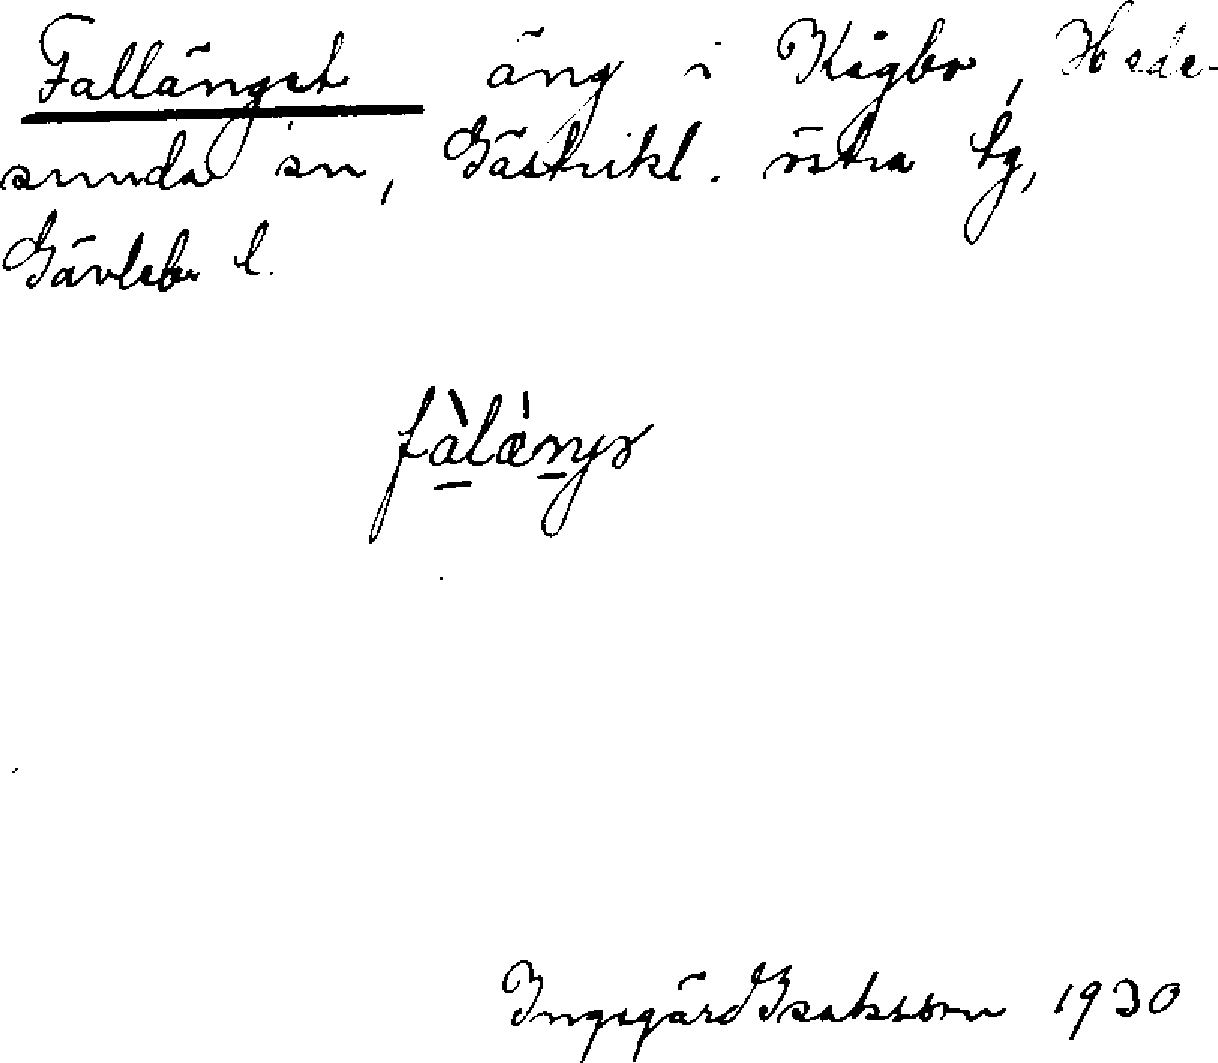 Fallänget äng i Kågbo, Hede-
sunda sn, Gästrikl. östra tg,
Gävleb. l.
fàlæ̀njə
Ingegärd Isaksson 1930